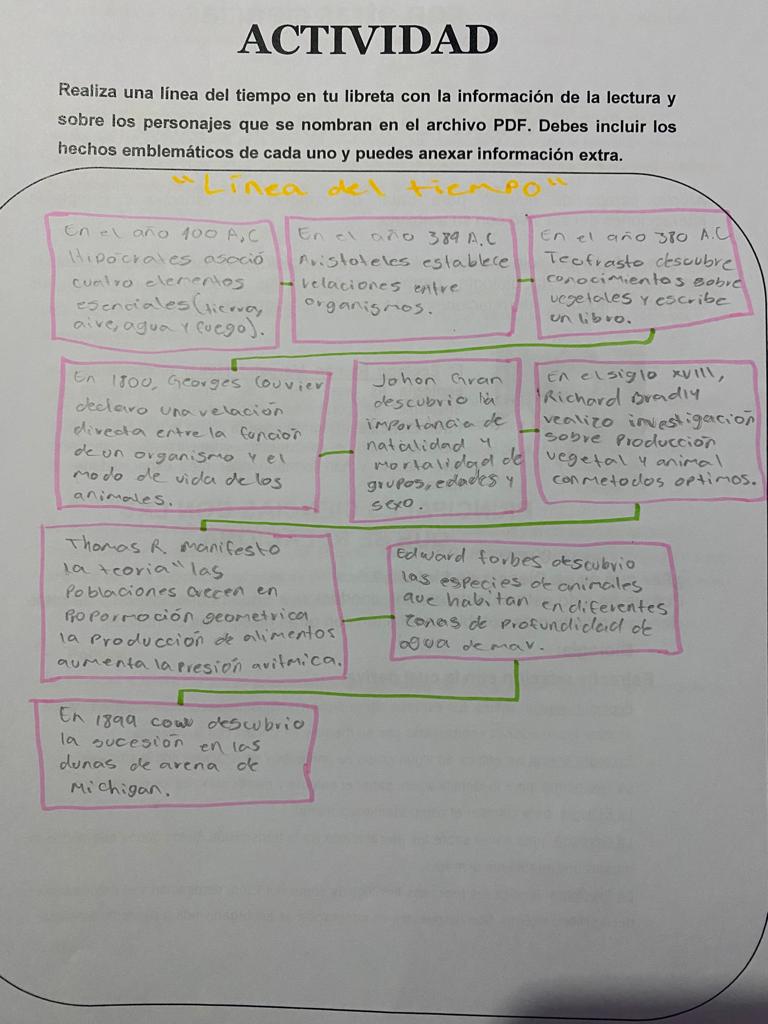 ACTIVIDAD
Realiza una línea del tiempo en tu libreta con la información de la lectura y
sobre los personajes que se nombran en el archivo PDF. Debes incluir los
hechos emblemáticos de cada uno y puedes anexar información extra.
"Línea del tiempo"
En el año 400 A,C
Hipócrates asoció
cuatro elementos
esenciales (tierra,
aire, agua y fuego).
En el año 384 A.C
Aristoteles establece
relaciones entre
organismos.
En el año 380 A.C
Teofrasto descubre
conocimientos sobre
vegetales y escribe
un libro.
En 1800, Georges Couvier
declaro una relación
directa entre la función
de un organismo y el
modo de vida de los
animales.
Johon Gran
descubrio la
importancia de
natalidad y
mortalidad de
grupos, edades y
sexo.
En el siglo XVIII,
Richard Bradly
realizo investigación
sobre Producción
vegetal y animal
con metodos optimos.
Thomas R. manifesto
la teoria "las
Poblaciones crecen en
Popormoción geometrica
la Producción de alimentos
aumenta la presión aritmica.
Edward forbes descubrio
las especies de animales
que habitan en diferentes
zonas de profundidad de
agua de mar.
En 1899 descubrio
la sucesión en las
dunas de arena de
Michigan.